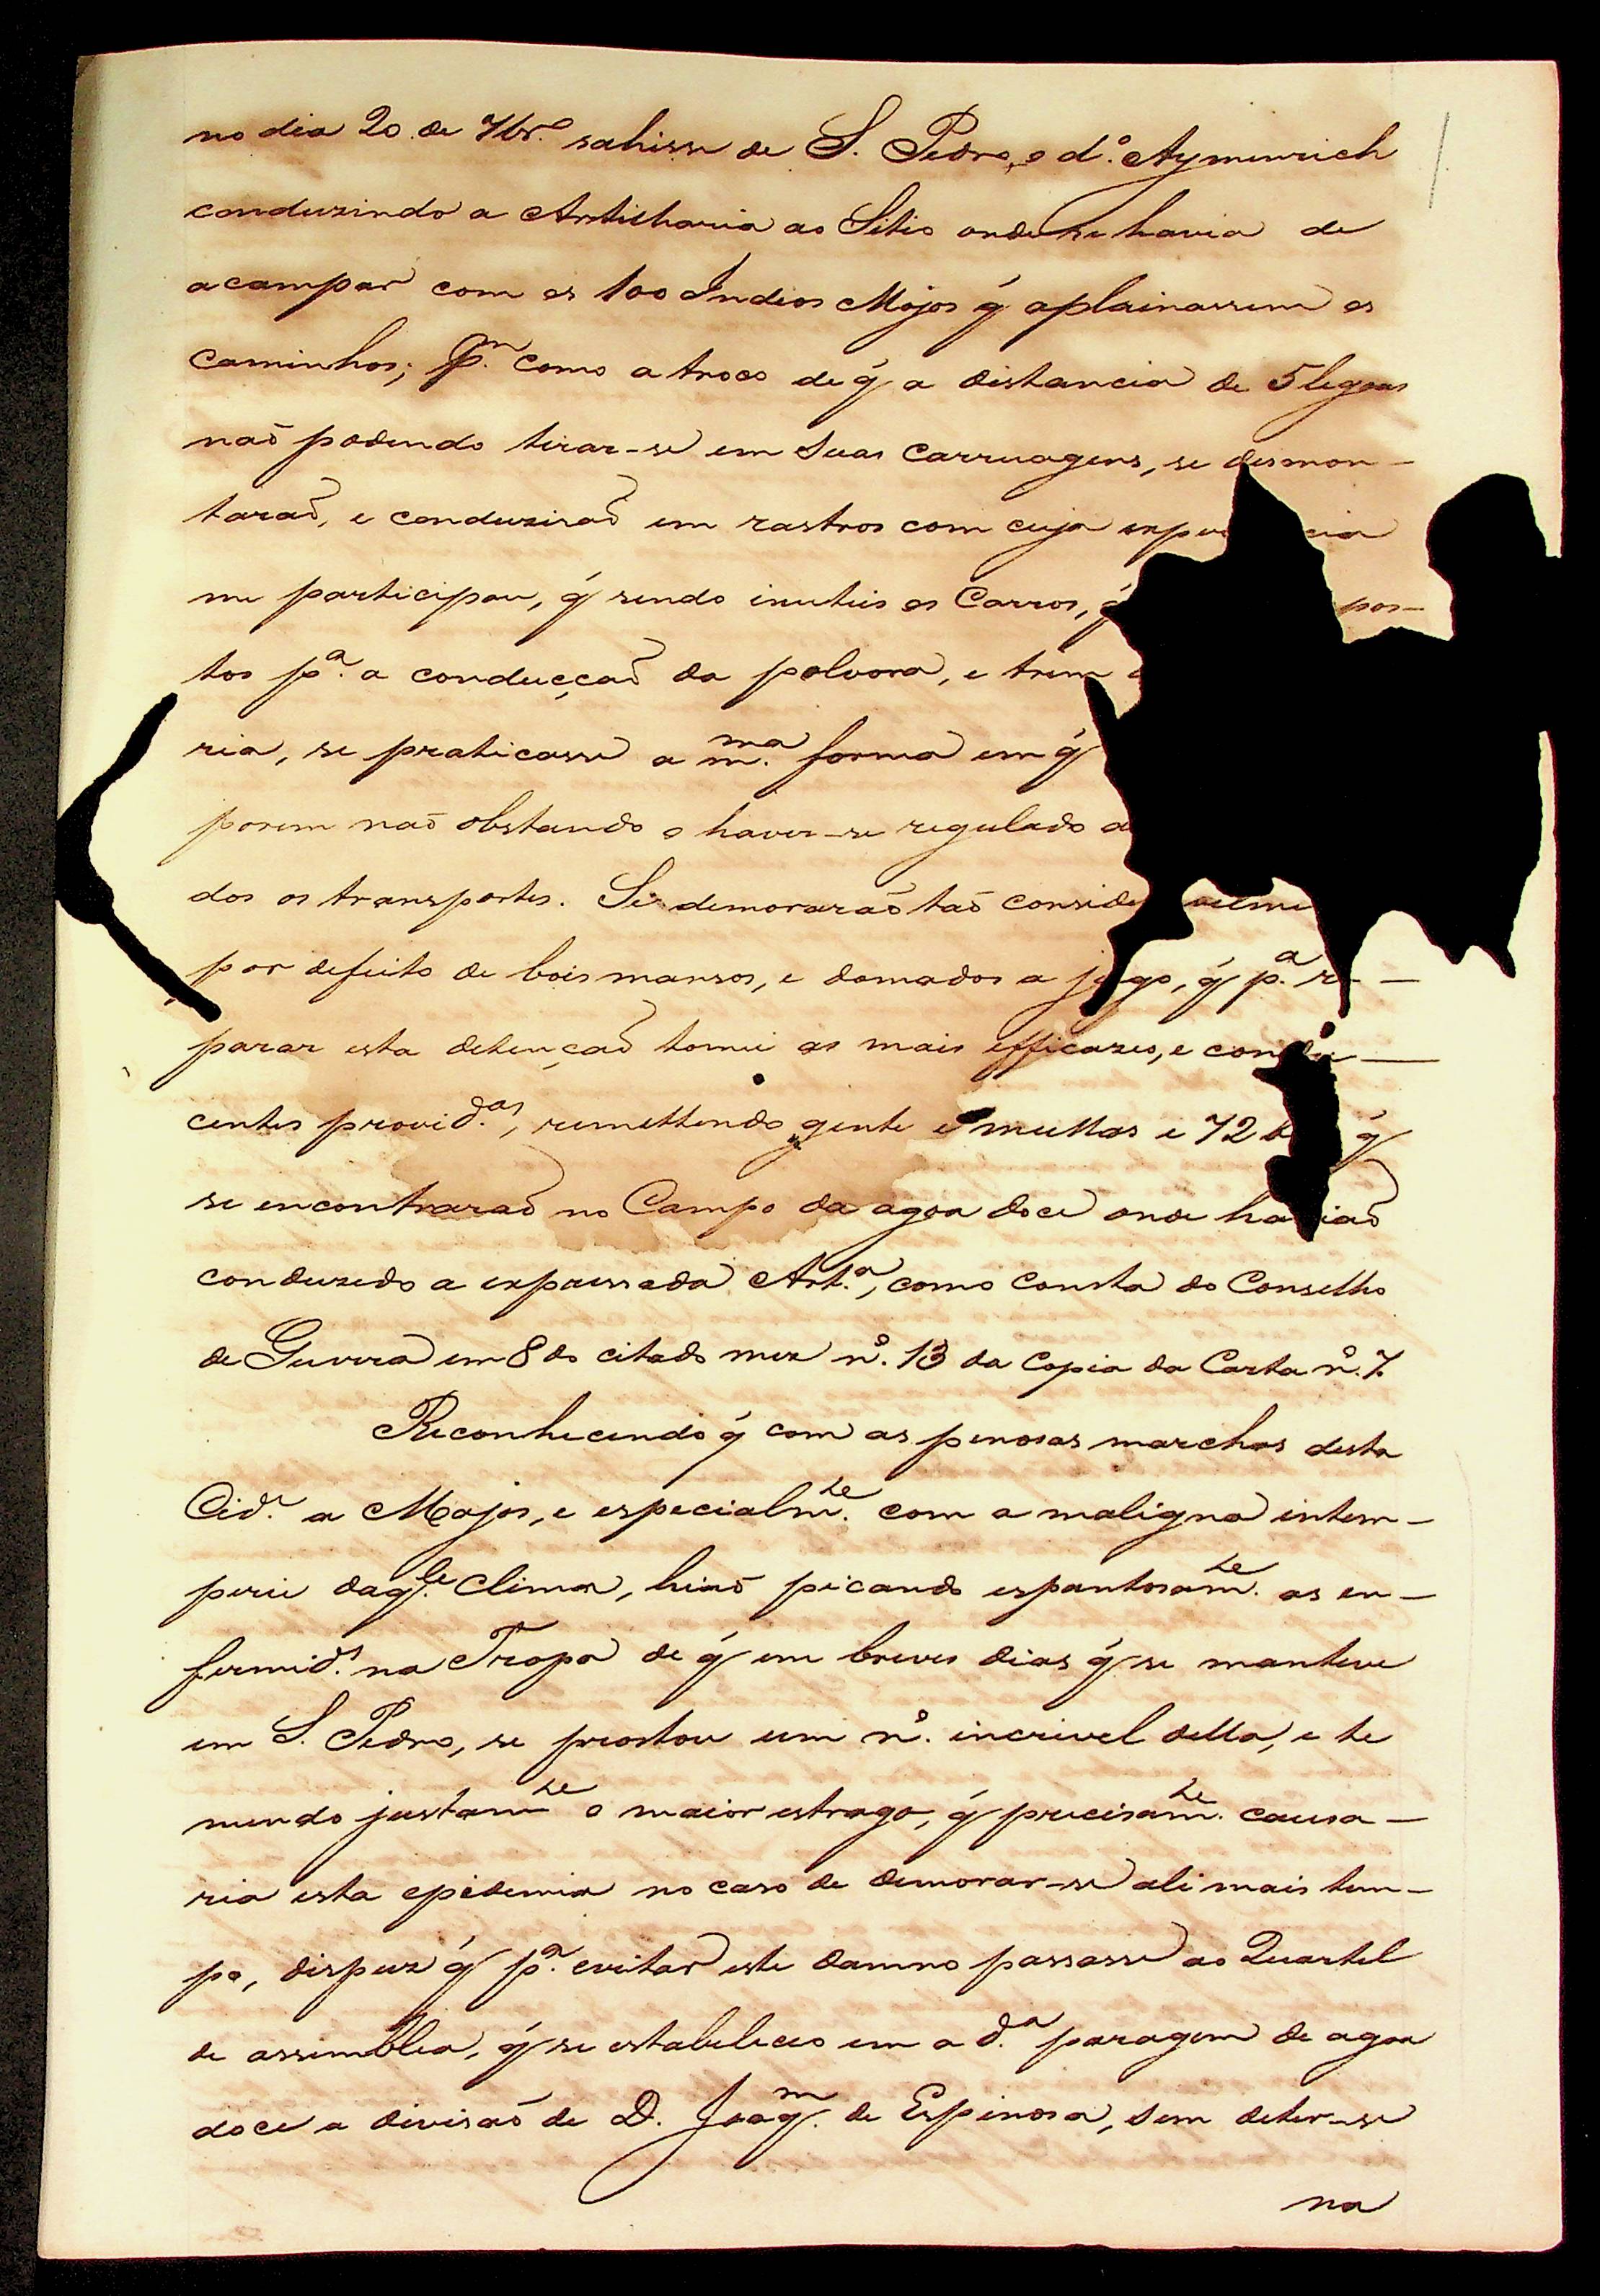 no dia 20 de 7br.º sahisse de S. Pedro, o d.º Aymerich
conduzindo a Artilharia ao Sitio onde se havia de
acampar com os 100 Indios Mojos q̃ aplainassem os
caminhos; p.m como a troco de q̃ a distancia de 5 legoas
naõ podendo tirar-se em suas carruagens, se desmon-
taraõ, e conduziraõ em rastros com cuja cia
me participou, q̃ sendo inuteis os Carros, pos-
tos p.ª a conducçaõ da polvora, e trem
ria, se praticasse a m.ma forma em q̃
porem naõ obstando o haver-se regulado a
dos os transportes. Se demoraraõ taõ
por defeito de bois mansos, e domados a jugo, q̃ p.ª re-
parar esta detençaõ tomei as mais efficazes, e condu-
centes provid.as, remettendo gente e mullas e 72 q̃
se encontraraõ no Campo da agoa doce onde haviaõ
conduzido a expressada Art.ª, como consta do Conselho
de Guerra em 8 do citado mez n.º 13 da Copia da Carta n.º 7.
Reconhecendo q̃ com as penosas marchas desta
Cid.e a Mojos, e especialm.te com a maligna intem-
perie daq.le Clima, hiaõ picando espantosam.te as en-
fermid.s na Tropa de q̃ em breves dias q̃ se manteve
em S. Pedro, se prostou um n.º incrivel della, e te
mendo justam.te o maior estrago, q̃ precisam.te causa-
ria esta epidemia no caso de demorar-se ali mais tem-
po, dispuz q̃ p.ª evitar este damno passasse ao Quartel
de assemblea, q̃ se estabeleceo em a d.ª paragem de agoa
doce a divisaõ de D. Joaq.m de Espinosa, sem deter-se
na